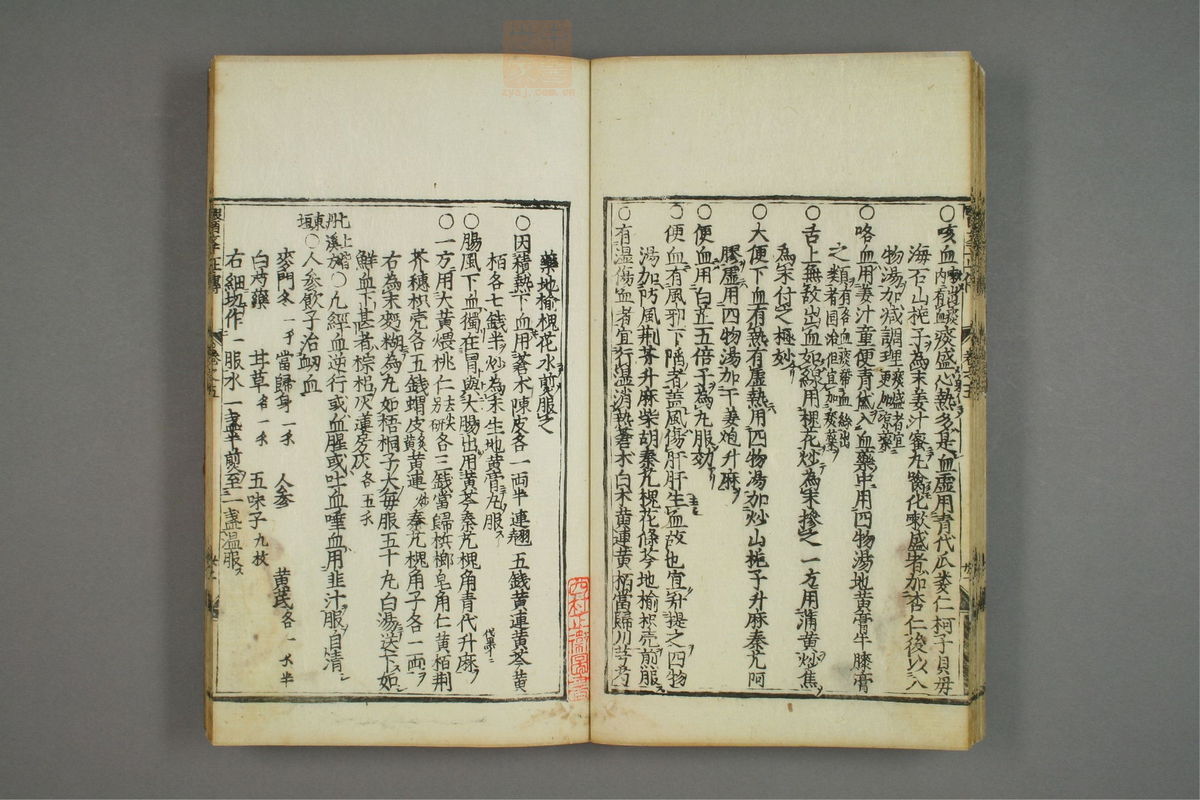 ○咳血 痰盛心熱多是血虚用青代瓜蔞仁柯子貝母
海石山梔子為末姜汁蜜丸噙化嗽盛者加杏仁後以八
物湯加減調理 痰盛者宜更加痰藥
○咯血用姜汁童便青代入血藥中用四物湯地黄膏牛膝膏
之類
○舌上無故出血如線用槐花炒為末摻之一方用蒲黄炒焦
為末付之極妙
○大便下血有熱有虚熱用四物湯加炒山梔子升麻秦艽阿
膠虚用四物湯加干姜炮升麻
○便血用白芷五倍子為丸服効
○便血有風邪下陥者蓋風傷肝肝生血故也宜升提之四物
湯加防風荆芥升麻柴胡秦艽槐花條芩地榆枳売煎服
○有濕傷血者宜行湿消熱蒼木白木黄連黄栢當歸川芎芍
藥地榆槐花水煎服之
○因積熱下血用蒼木陳皮各一両半連翹五銭黄連黄芩黄
栢各七銭半炒為末生地黄膏丸服
○腸風下血獨在胃與大腸出用黄芩秦艽槐角青代升麻
○一方用大黄煨桃仁去皮尖別研各三銭當歸梹榔皂角仁黄栢荆
芥穗枳売各五銭蝟皮炙黄連炒秦艽槐角子各一両
右為末麪糊為丸如梧桐子大每服五十丸白湯送下如
鮮血下甚者棕梠灰蓮房灰各五銭
丹溪方○九經血逆行或血腥或吐血唾血用韭汁服自清
東垣○人参飲子治衂血
麥門冬 當歸身 人参 黄芪
白芍藥 甘草 五味子九枚
右細切作一服水一盞半煎至一盞温服